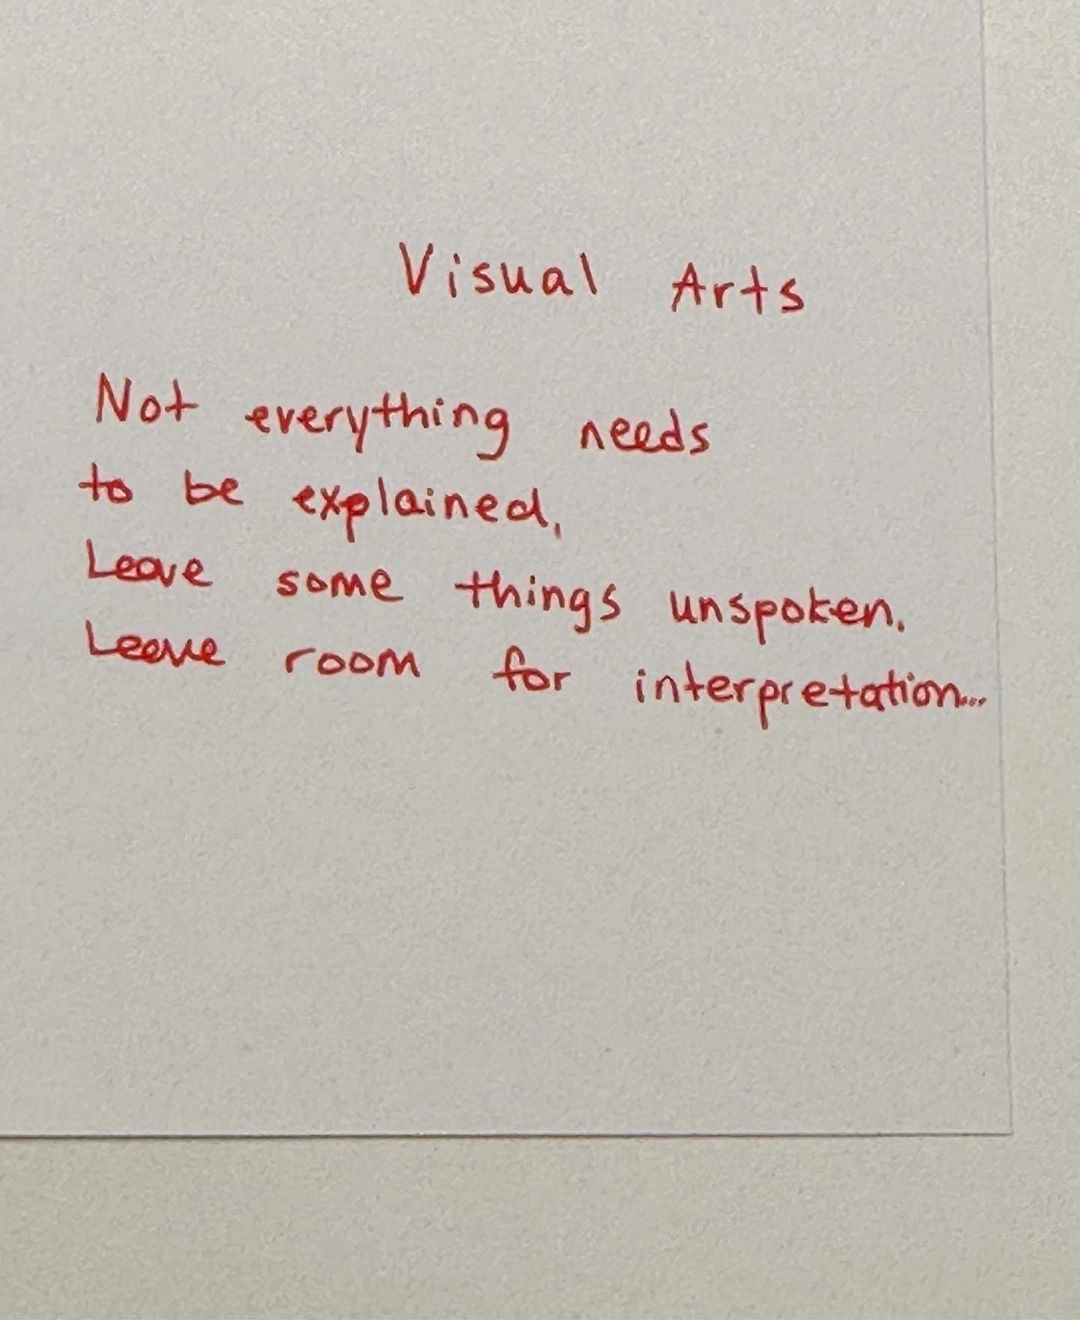 Visual Arts
Not everything needs
to be explained,
Leave some things unspoken.
Leave room for interpretation...